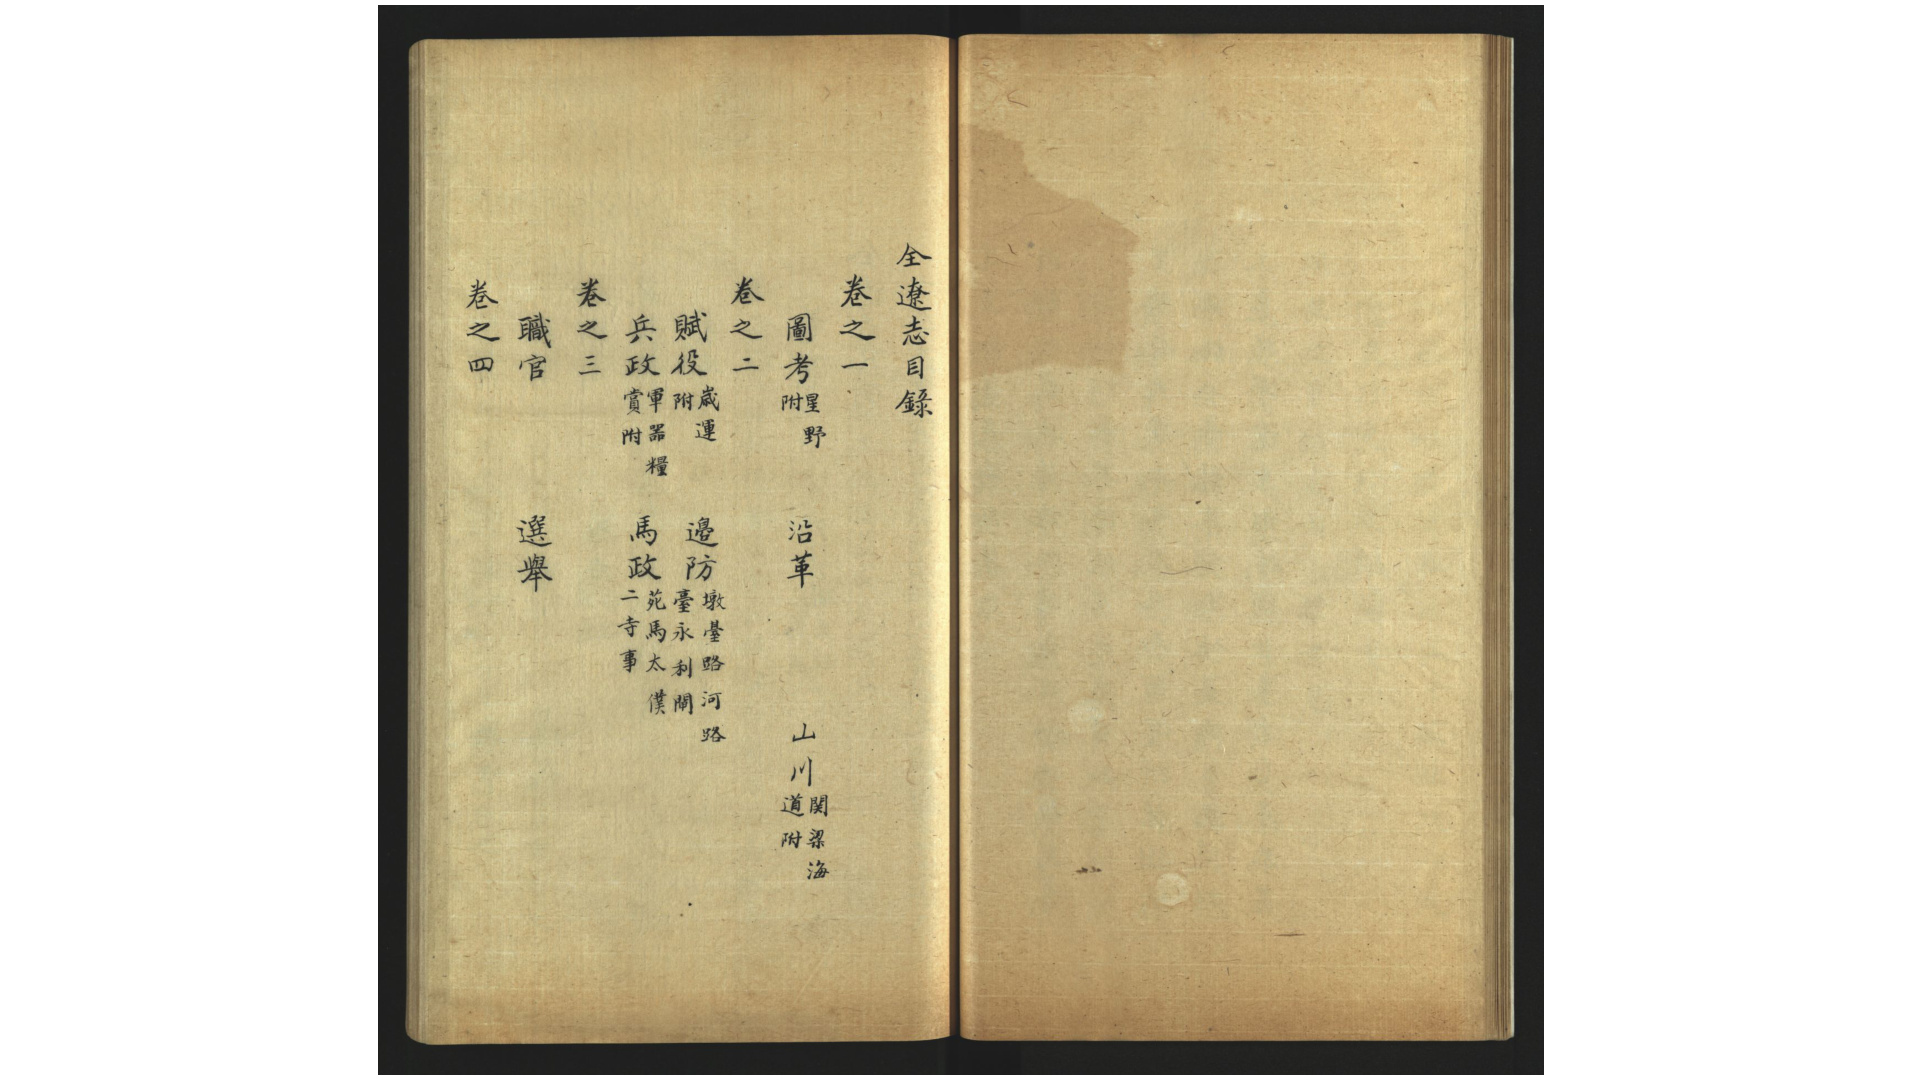 全遼志目錄
卷之一
圖考星野附 沿革 山川関梁海道附
卷之二
賦役歲運附 邊防墩臺路河路臺永利閘
兵政軍器糧賞附 馬政苑馬太僕二寺事
卷之三
職官 選舉
卷之四